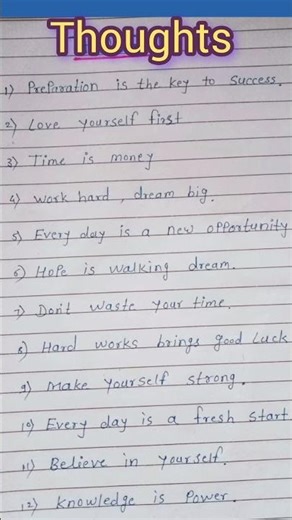 Thoughts
1) Preparation is the key to success.
2) Love yourself first
3) Time is money
4) work hard, dream big.
5) Every day is a new opportunity
6) Hope is walking dream.
7) Don't waste your time.
8) Hard works brings good Luck
9) Make yourself strong.
10) Every day is a fresh start
11) Believe in yourself.
12) knowledge is Power.